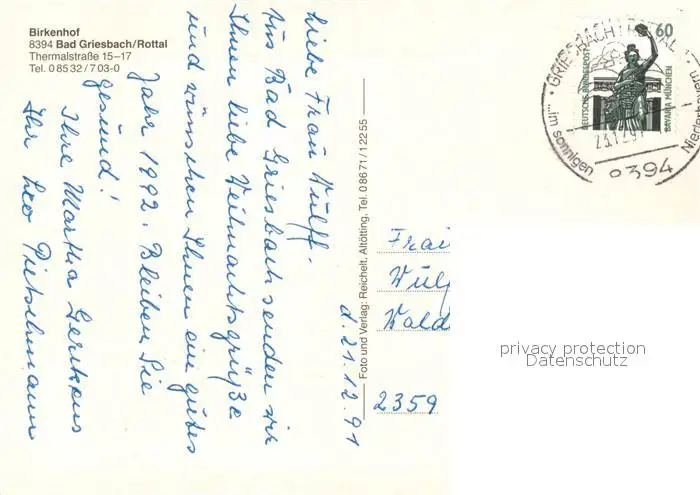 Birkenhof
8394 Bad Griesbach/Rottal
Thermalstraße 15–17
Tel. 0 85 32 / 7 03-0
Liebe Frau Wulff.
Aus Bad Griesbach senden wir
Ihnen liebe Weihnachtsgrüße
und wünschen Ihnen ein gutes
Jahr 1992. Bleiben Sie
gesund!
Ihre Martha Gerikens
Ihr Leo Pietschmann
d. 21.12.91
Foto und Verlag: Reichelt, Altötting, Tel. 0 86 71 / 1 22 55
60
DEUTSCHE BUNDESPOST
BAVARIA MÜNCHEN
GRIESBACH
...im sonnigen
8394
Frau
Wulf
Wald
2359
privacy protection
Datenschutz